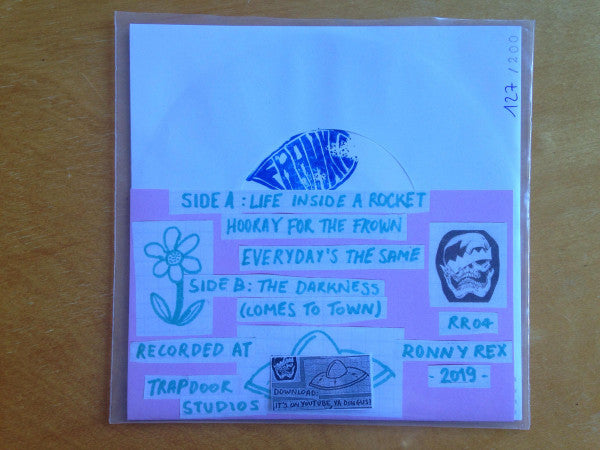 127/200
SIDE A: LIFE INSIDE A ROCKET
HOORAY FOR THE FROWN
EVERYDAY'S THE SAME
SIDE B: THE DARKNESS
(COMES TO TOWN)
RR04
RECORDED AT
RONNY REX
TRAPDOOR
- 2019 -
STUDIOS
DOWNLOAD:
IT'S ON YOUTUBE, YA DINGUS!